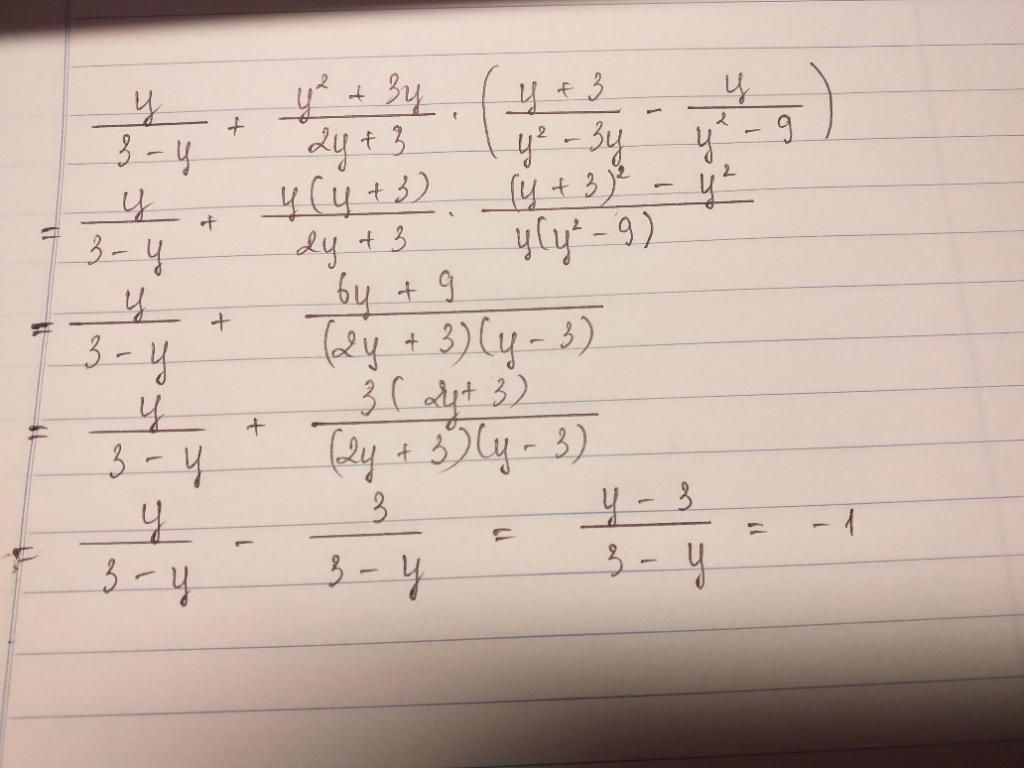 y/(3 - y) + (y² + 3y)/(2y + 3) · ((y + 3)/(y² - 3y) - y/(y² - 9))
= y/(3 - y) + y(y + 3)/(2y + 3) · ((y + 3)² - y²)/(y(y² - 9))
= y/(3 - y) + (6y + 9)/((2y + 3)(y - 3))
= y/(3 - y) + 3(2y + 3)/((2y + 3)(y - 3))
= y/(3 - y) - 3/(3 - y) = (y - 3)/(3 - y) = -1